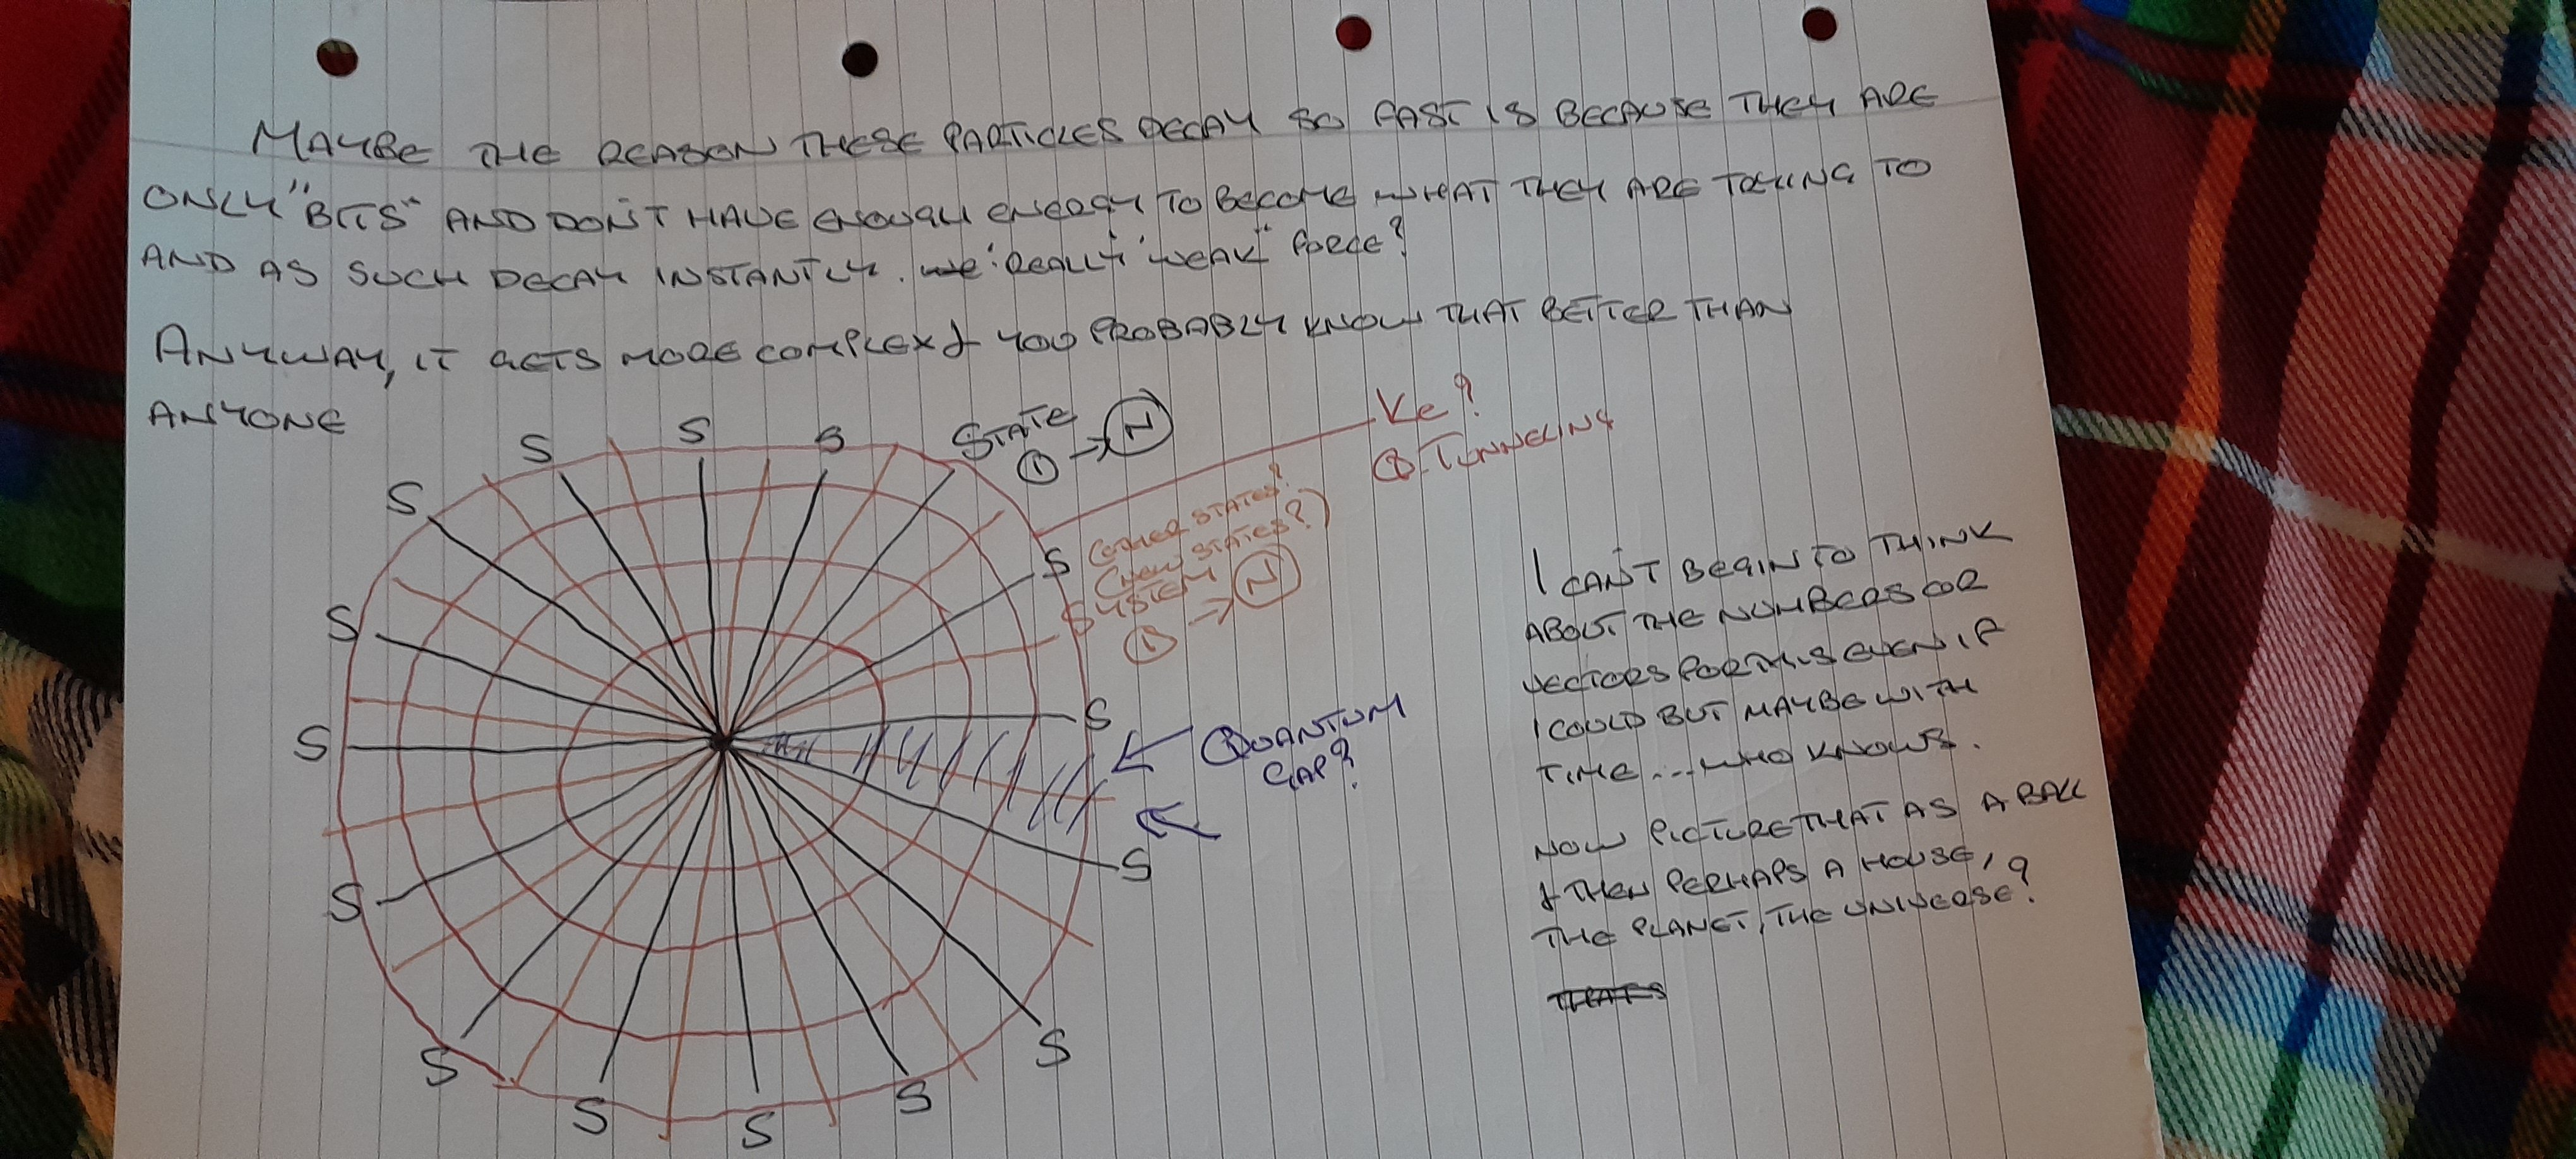 MAYBE THE REASON THESE PARTICLES DECAY SO FAST IS BECAUSE THEY ARE
ONLY "BITS" AND DON'T HAVE ENOUGH ENERGY TO BECOME WHAT THEY ARE TRYING TO
AND AS SUCH DECAY INSTANTLY. 'REALLY' 'WEAK" FORCE?
ANYWAY, IT GETS MORE COMPLEX & YOU PROBABLY KNOW THAT BETTER THAN
ANYONE
S
S
S
S
STATE
1 → N
Ke?
Q-TUNNELING
(OTHER STATES?
(NEW STATES?)
SYSTEM
1 → N
S
S
S
S
S
S
S
S
S
S
S
S
QUANTUM
GAP?
I CAN'T BEGIN TO THINK
ABOUT THE NUMBERS OR
VECTORS FOR THIS EVEN IF
I COULD BUT MAYBE WITH
TIME...WHO KNOWS.
NOW PICTURE THAT AS A BALL
& THEN PERHAPS A HOUSE,
THE PLANET, THE UNIVERSE?
THATS